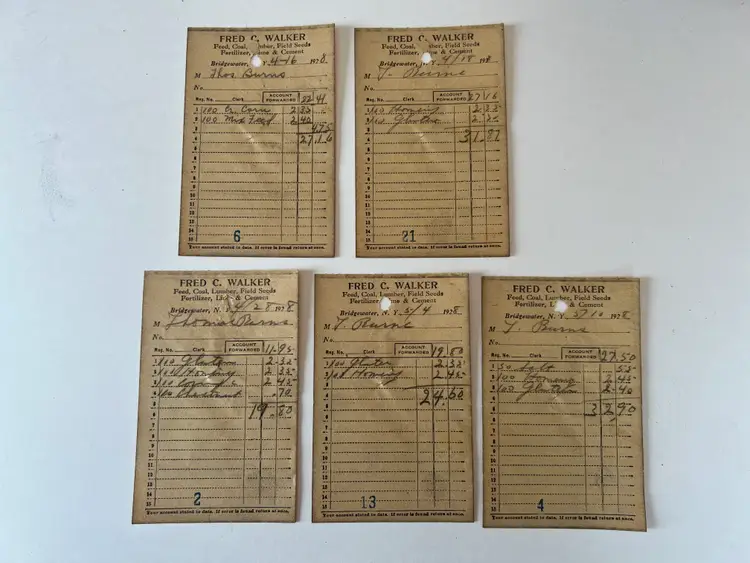 FRED C. WALKER
Feed, Coal, Lumber, Field Seeds
Fertilizer, Lime & Cement
Bridgewater, N. Y. 4-16 1928
M Thos Burns
No.
Reg. No. Clerk ACCOUNT FORWARDED 22 41
1 100 Cr. Corn 2 35
2 100 Mix Feed 2 40
3 4.75
4 27 16
5
6
7
8
9
10
11
12
13
14
15
6
Your account stated to date. If error is found return at once.
FRED C. WALKER
Feed, Coal, Lumber, Field Seeds
Fertilizer, Lime & Cement
Bridgewater, N. Y. 4/18 1928
M T. Burns
No.
Reg. No. Clerk ACCOUNT FORWARDED 27 16
1 100 Hominy 2 35
2 100 Gluten
3
4 31.81
5
6
7
8
9
10
11
12
13
14
15
21
Your account stated to date. If error is found return at once.
FRED C. WALKER
Feed, Coal, Lumber, Field Seeds
Fertilizer, Lime & Cement
Bridgewater, N. Y. 4/28 1928
M Thomas Burns
No.
Reg. No. Clerk ACCOUNT FORWARDED 11.95
1 100 Gluten 2.35
2 100 Hominy 2 35
3 100 2 45
4 100 .70
5
6 19.80
7
8
9
10
11
12
13
14
15
2
Your account stated to date. If error is found return at once.
FRED C. WALKER
Feed, Coal, Lumber, Field Seeds
Fertilizer, Lime & Cement
Bridgewater, N. Y. 5/4 1928
M T. Burns
No.
Reg. No. Clerk ACCOUNT FORWARDED 19.80
1 100 Gluten 2 35
2 100 Hominy 2 45
3
4
5 24.60
6
7
8
9
10
11
12
13
14
15
13
Your account stated to date. If error is found return at once.
FRED C. WALKER
Feed, Coal, Lumber, Field Seeds
Fertilizer, Lime & Cement
Bridgewater, N. Y. 5/10 1928
M T. Burns
No.
Reg. No. Clerk ACCOUNT FORWARDED 27.50
1 50 Salt .55
2 100 Hominy 2.45
3 100 Gluten 2.40
4
5
6 32.90
7
8
9
10
11
12
13
14
15
4
Your account stated to date. If error is found return at once.